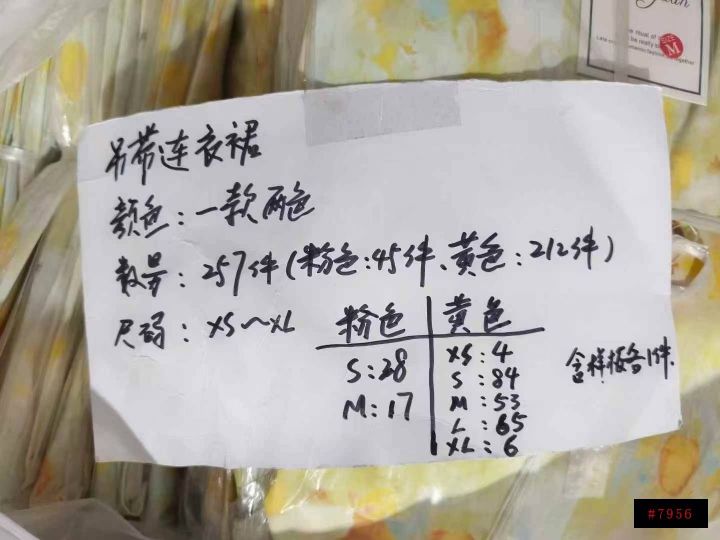 吊带连衣裙
颜色：一款两色
数量：257件(粉色:45件、黄色:212件)
尺码：XS～XL
粉色
S:28
M:17
黄色
XS:4
S:84
M:53
L:65
XL:6
含样板各1件.
SIZE
M
#7956